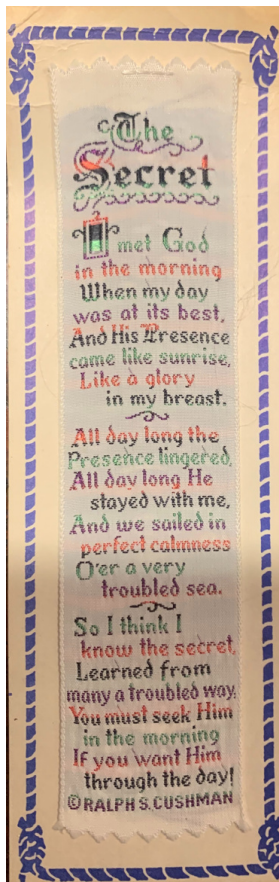 The
Secret
I met God
in the morning
When my day
was at its best,
And His Presence
came like sunrise,
Like a glory
in my breast.
All day long the
Presence lingered,
All day long He
stayed with me,
And we sailed in
perfect calmness
O'er a very
troubled sea.
So I think I
know the secret,
Learned from
many a troubled way.
You must seek Him
in the morning
If you want Him
through the day!
© RALPH S. CUSHMAN